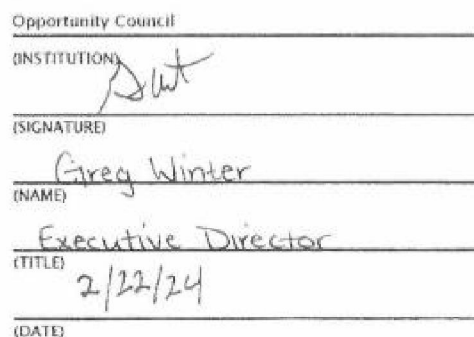 Opportunity Council
(INSTITUTION)
(SIGNATURE)
Greg Winter
(NAME)
Executive Director
(TITLE)
2/22/24
(DATE)